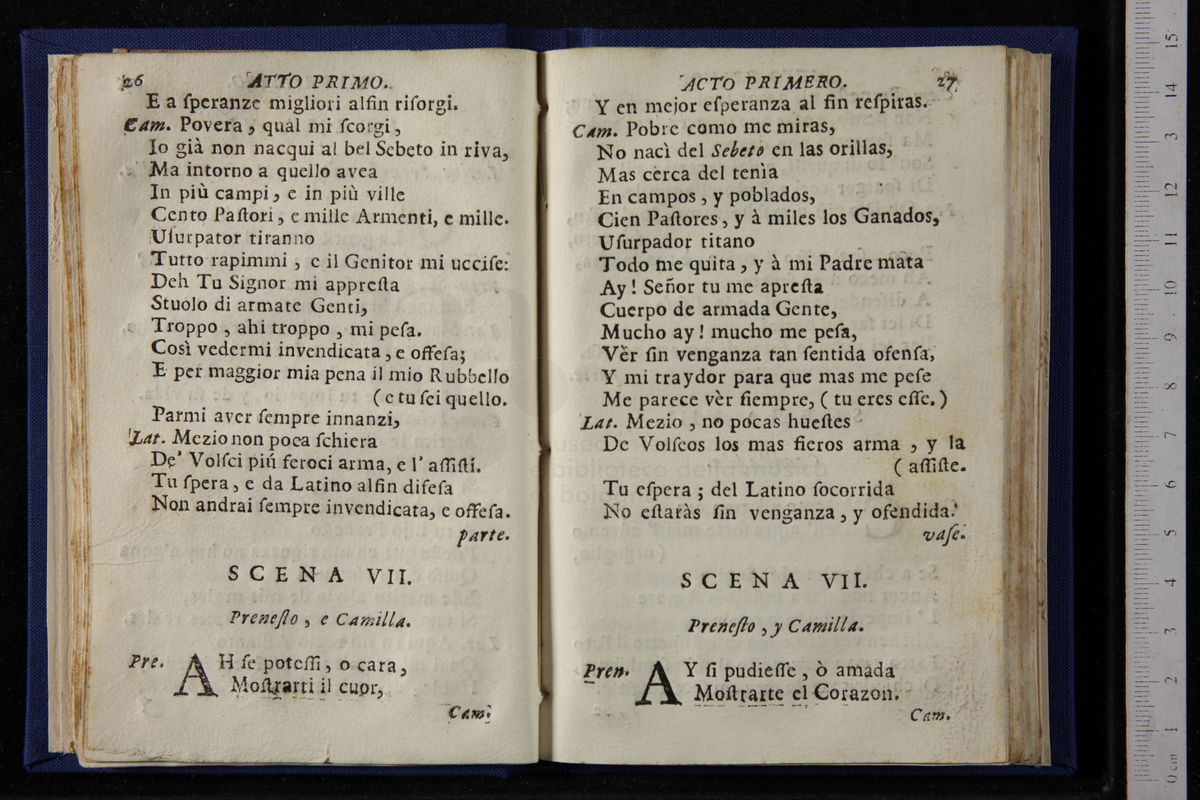 26 ATTO PRIMO.
E a ſperanze migliori alfin riſorgi.
Cam. Povera, qual mi ſcorgi,
Io già non nacqui al bel Sebeto in riva,
Ma intorno a quello avea
In più campi, e in più ville
Cento Paſtori, e mille Armenti, e mille.
Uſurpator tiranno
Tutto rapimmi, e il Genitor mi ucciſe:
Deh Tu Signor mi appreſta
Stuolo di armate Genti,
Troppo, ahi troppo, mi peſa.
Così vedermi invendicata, e offeſa;
E per maggior mia pena il mio Rubbello
(e tu ſei quello.
Parmi aver ſempre innanzi,
Lat. Mezio non poca ſchiera
De' Volſci piú feroci arma, e l' aſſiſtí.
Tu ſpera, e da Latino alfin difeſa
Non andrai ſempre invendicata, e offeſa.
parte.
SCENA VII.
Preneſto, e Camilla.
Pre. AH ſe poteſſi, o cara,
Moſtrarti il cuor,
Cam.
ACTO PRIMERO. 27
Y en mejor eſperanza al fin reſpiras.
Cam. Pobre como me miras,
No nacì del Sebeto en las orillas,
Mas cerca del tenìa
En campos, y poblados,
Cien Paſtores, y à miles los Ganados,
Uſurpador titano
Todo me quita, y à mi Padre mata
Ay! Señor tu me apreſta
Cuerpo de armada Gente,
Mucho ay! mucho me peſa,
Vèr ſin venganza tan ſentida ofenſa,
Y mi traydor para que mas me peſe
Me parece vèr ſiempre, (tu eres eſſe.)
Lat. Mezio, no pocas hueſtes
De Volſcos los mas fieros arma, y la
(aſſiſte.
Tu eſpera; del Latino ſocorrida
No eſtaràs ſin venganza, y ofendida.
vaſe.
SCENA VII.
Preneſto, y Camilla.
Pren. AY ſi pudieſſe, ò amada
Moſtrarte el Corazon.
Cam.